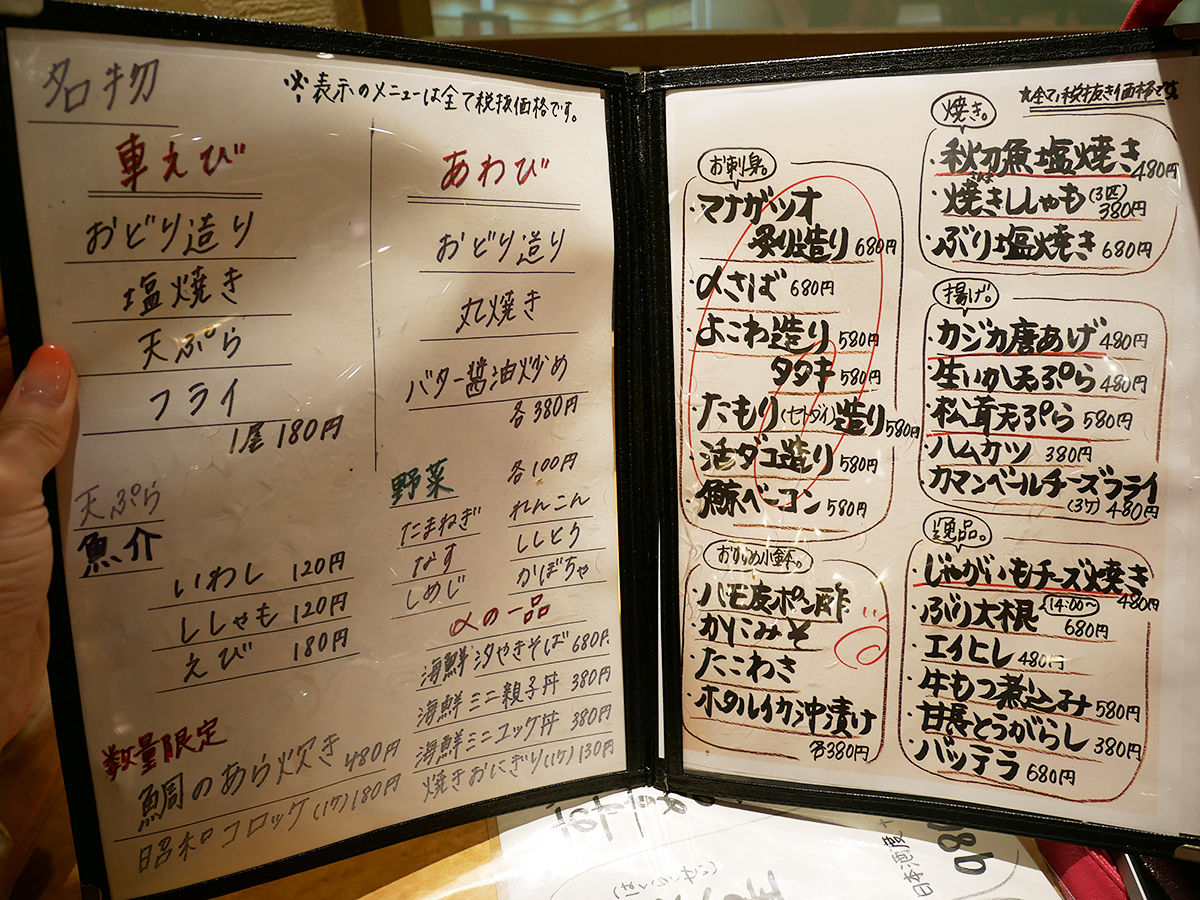 名物
※表示のメニューは全て税抜価格です。
車えび
おどり造り
塩焼き
天ぷら
フライ
1尾 180円
あわび
おどり造り
丸焼き
バター醤油炒め
各380円
天ぷら
魚介
いわし 120円
ししゃも 120円
えび 180円
野菜 各100円
たまねぎ れんこん
なす ししとう
しめじ かぼちゃ
〆の一品
海鮮汐やきそば 680円
海鮮ミニ親子丼 380円
海鮮ミニユッケ丼 380円
焼きおにぎり(1ケ) 130円
数量限定
鯛のあら炊き 480円
昭和コロッケ(1ケ) 180円
お刺身。
・マナガツオ
炙り造り 680円
・〆さば 680円
・よこわ造り 580円
タタキ 580円
・たもり(セトダイ)造り 580円
・活ダコ造り 580円
・鯨ベーコン 580円
小鉢。
・ハモ皮ポン酢
・かにみそ
・たこわさ
・ホタルイカ沖漬け
各380円
※全て税抜き価格です
焼き。
・秋刀魚塩焼き 480円
さんま
・焼きししゃも(3匹) 380円
・ぶり塩焼き 680円
揚げ。
・カジカ唐あげ 480円
・生いか天ぷら 480円
・松茸天ぷら 580円
・ハムカツ 380円
・カマンベールチーズフライ
(3ケ) 480円
逸品。
・じゃがいもチーズ焼き 480円
・ぶり大根 (14:00〜) 680円
・エイヒレ 480円
・牛もつ煮込み 580円
・甘長とうがらし 380円
・バッテラ 680円
日本酒度+